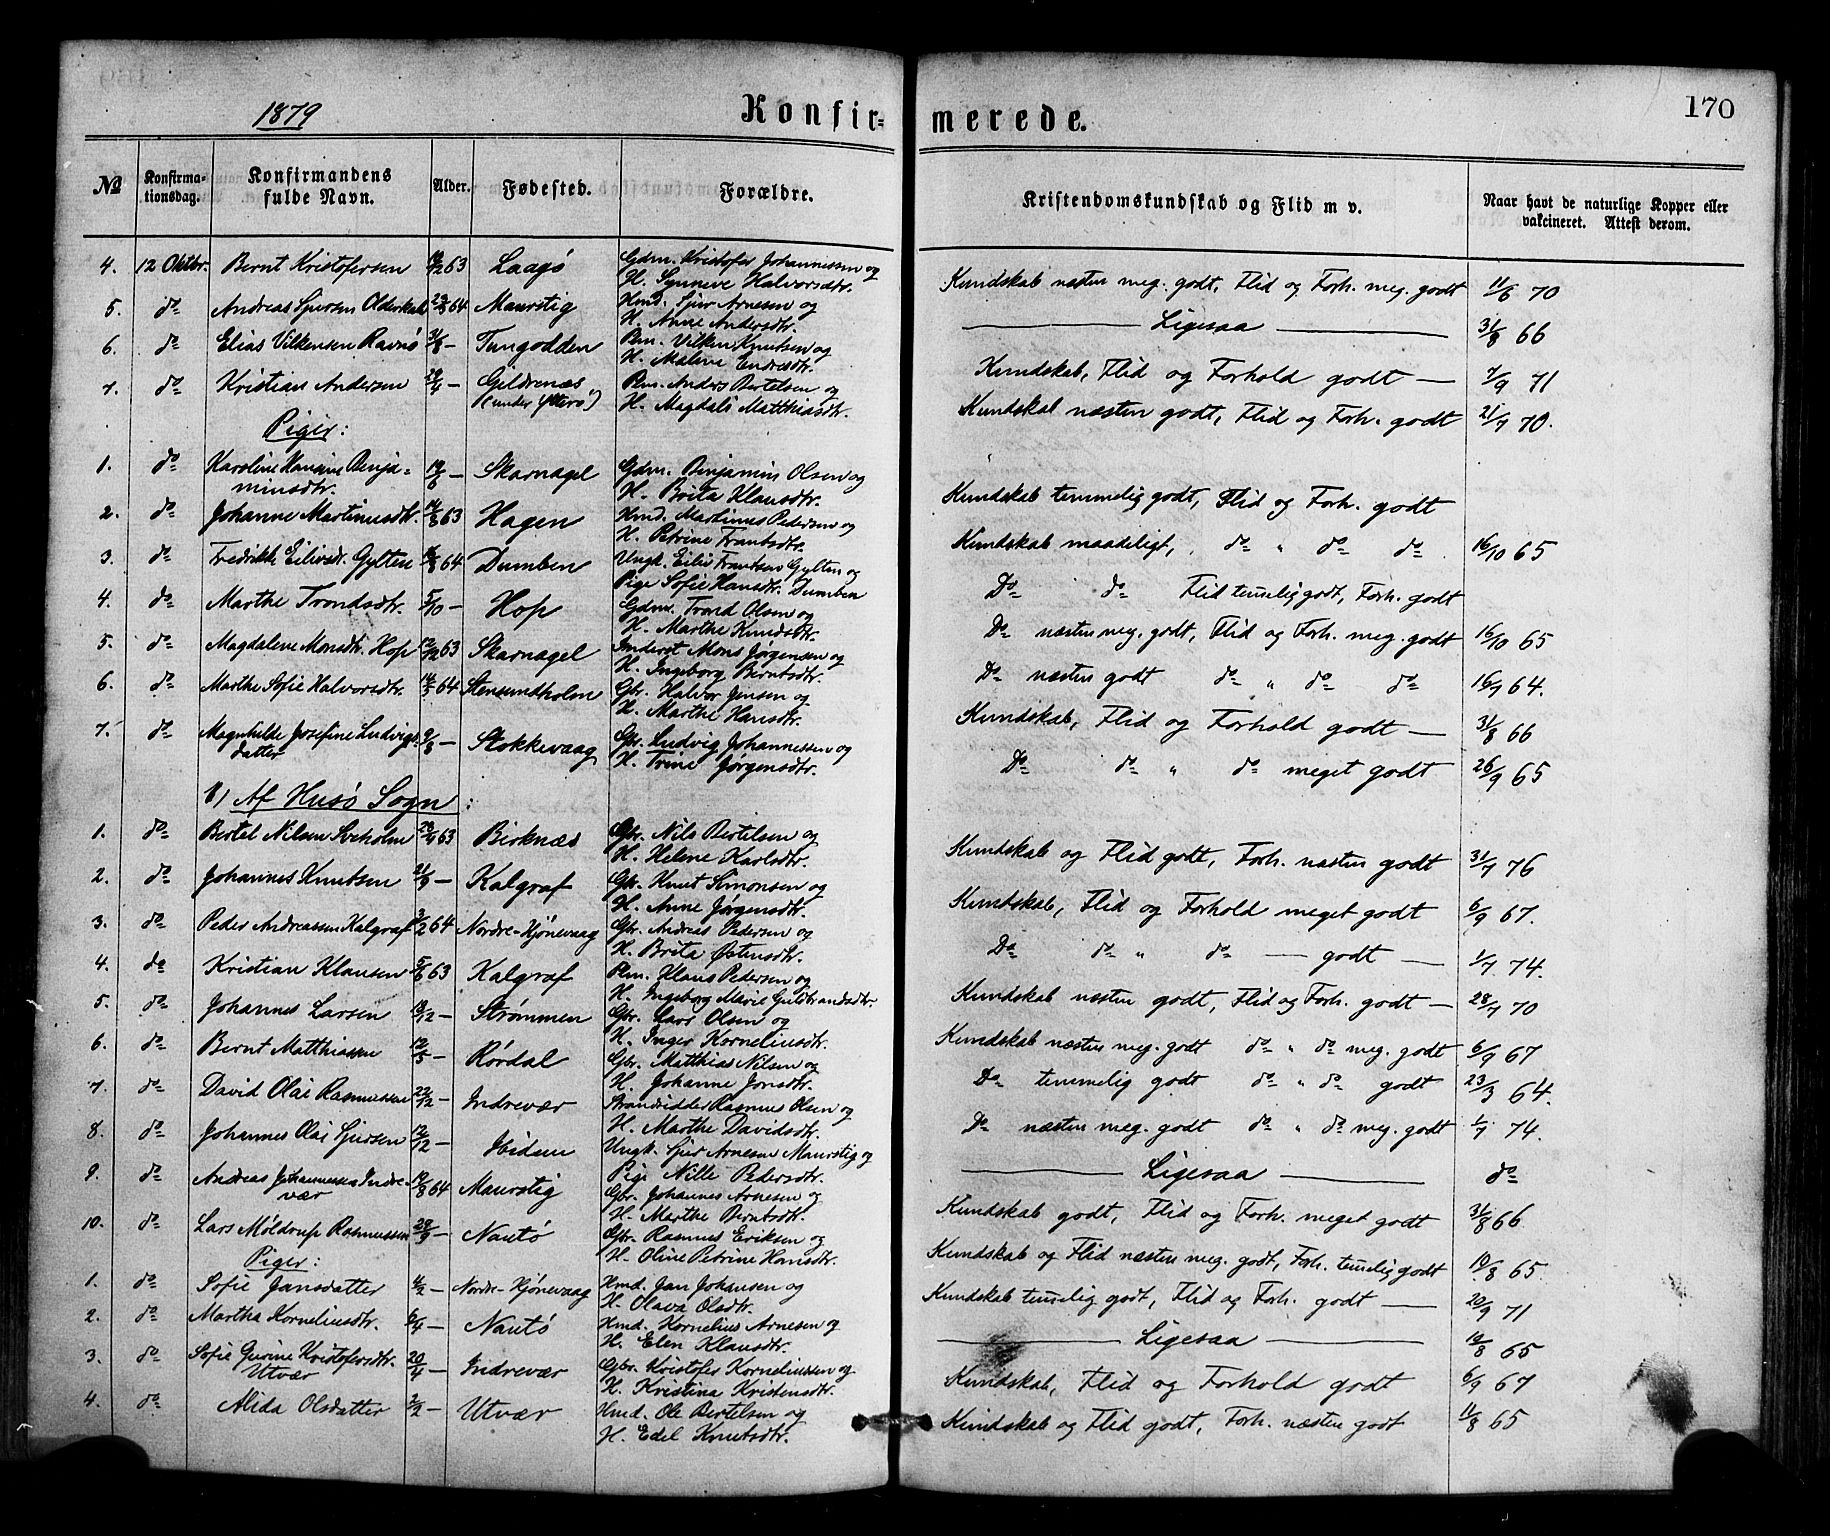 1879
Konfir-
merede.
170
№
Konfirmationsdag.
Konfirmandens fulde Navn.
Alder.
Fødested.
Forældre.
Kristendomskundskab og Flid m v.
Naar havt de naturlige Kopper eller vakcineret. Attest derom.
4. 12 Oktbr. Bernt Kristofersen 63 Laagö Gdm. Kristofer Johannessen og H. Synneve Halvorsdtr. Kundskab næsten meg. godt, Flid og Forh. meg. godt 11/6 70
5. do Andreas Sjursen Olderkal 64 Maurstig Hmd. Sjur Arnesen og H. Anne Andersdtr. Ligesaa 31/8 66
6. do Elias Vilkensen Ravnö – Tungodden Pm. Vilken Knutsen og H. Malene Endresdtr. Kundskab, Flid og Forhold godt – 7/9 71
7. do Kristian Andersen – Gildrenæs (under Ytterö) Pm. Anders Bertelsen og H. Magdali Matthiasdtr. Kundskab næsten godt, Flid og Forh. godt 21/7 70.
Piger:
1. do Karoline Hansine Benjaminsdtr. – Skarnagel Gdm. Benjamin Olsen og H. Brita Klausdtr. Kundskab temmelig godt, Flid og Forh. godt
2. do Johanne Martinusdtr. 63 Hagen Hmd. Martinus Pedersen og H. Petrine Frantsdtr. Kundskab maadeligt, do " do do 16/10 65
3. do Fredrikke Eilivsdr. Gylten 64 Dumben Ungk. Eiliv Frantsen Gylten og Pige Sofie Hansdtr. Dumben Do do Flid temelig godt, Forh. godt
4. do Marthe Trondsdtr. 5/10 – Hop Gdm. Trond Olsen og H. Marthe Knudsdtr. Do næsten meg. godt, Flid og Forh. meg. godt 16/10 65
5. do Magdalene Monsdtr. Hop 63 Skarnagel Inderst Mons Jørgensen og H. Ingeborg Berntsdtr. Do næsten godt do " do do 16/7 64.
6. do Marthe Sofie Halvorsdtr. 64 Stensundholm Gbr. Halvor Jensen og H. Marthe Hansdtr. Kundskab, Flid og Forhold godt – 31/8 66
7. do Magnhilde Josefine Ludvigsdatter – Stokkevaag Gbr. Ludvig Johannessen og H. Trine Jørgensdtr. Do do " do meget godt 26/9 65
B) Af Husö Sogn:
1. do Bertel Nilsen Sveholm 63 Birknæs Gbr. Nils Bertelsen og H. Helene Karlsdtr. Kundskab og Flid godt, Forh. næsten godt 31/7 76
2. do Johannes Knutsen – Kalgraf Gbr. Knut Simonsen og H. Anne Jørgensdtr. Kundskab, Flid og Forhold meget godt 6/9 67.
3. do Peder Andreassen Kalgraf 3/2 64 Nordre-Hjönevaag Gbr. Andreas Pedersen og H. Brita Østensdtr. Do do " do – godt – 1/7 74.
4. do Kristian Klausen 63 Kalgraf Pm. Klaus Pedersen og H. Ingeborg Marie Guldbrandsdtr. Kundskab næsten godt, Flid og Forh. godt – 28/7 70
5. do Johannes Larsen – Strømmen Gbr. Lars Olsen og H. Inger Korneliusdtr. Kundskab næsten meg. godt do " do meg. godt 6/9 67
6. do Bernt Matthiassen – Rördal Gbr. Matthias Nilsen og H. Johanne Jonsdtr. Do temmelig godt do " do godt 23/3 64.
7. do David Olai Rasmussen 22/12 – Indrevær Strandsidder Rasmus Olsen og H. Marthe Davidsdtr. Do næsten meg. godt do " do meg. godt 1/7 74.
8. do Johannes Olai Sjursen 12/12 – Hiden Ungk. Sjur Arnesen Maurstig og Pige Nille Pedersdtr. Ligesaa do
9. do Andreas Johannessen Indrevær 64 Maurstig Gbr. Johannes Arnesen og H. Marthe Berntsdtr. Kundskab godt, Flid og Forh. meget godt 31/8 66
10. do Lars Möldrup Rasmussen – Nautö Gbr. Rasmus Eriksen og H. Oline Petrine Hansdtr. Kundskab og Flid næsten meg. godt, Forh. temelig godt 65.
Piger:
1. do Sofie Jansdatter 4/2 – Nordre-Hjönevaag Hmd. Jan Johansen og H. Olava Olsdtr. Kundskab temelig godt, Flid og Forh. godt – 20/9 71
2. do Martha Korneliusdtr. 6/4 – Nautö Hmd. Kornelius Arnesen og H. Elen Klausdtr. Ligesaa 65
3. do Sofie Gurine Kristofersdtr. Utvær 20/4 – Indrevær Gbr. Kristofer Korneliussen og H. Kristina Kristensdtr. Kundskab, Flid og Forhold godt 6/9 67
4. do Alida Olsdatter 2/2 – Utvær Hmd. Ole Bertelsen og H. Edel Knutsdtr. Kundskab og Flid godt, Forh. næsten godt 11/8 65